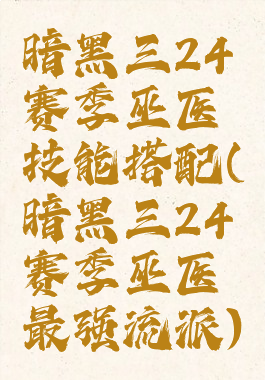 暗黑三24
赛季巫医
技能搭配(
暗黑三24
赛季巫医
最强流派)